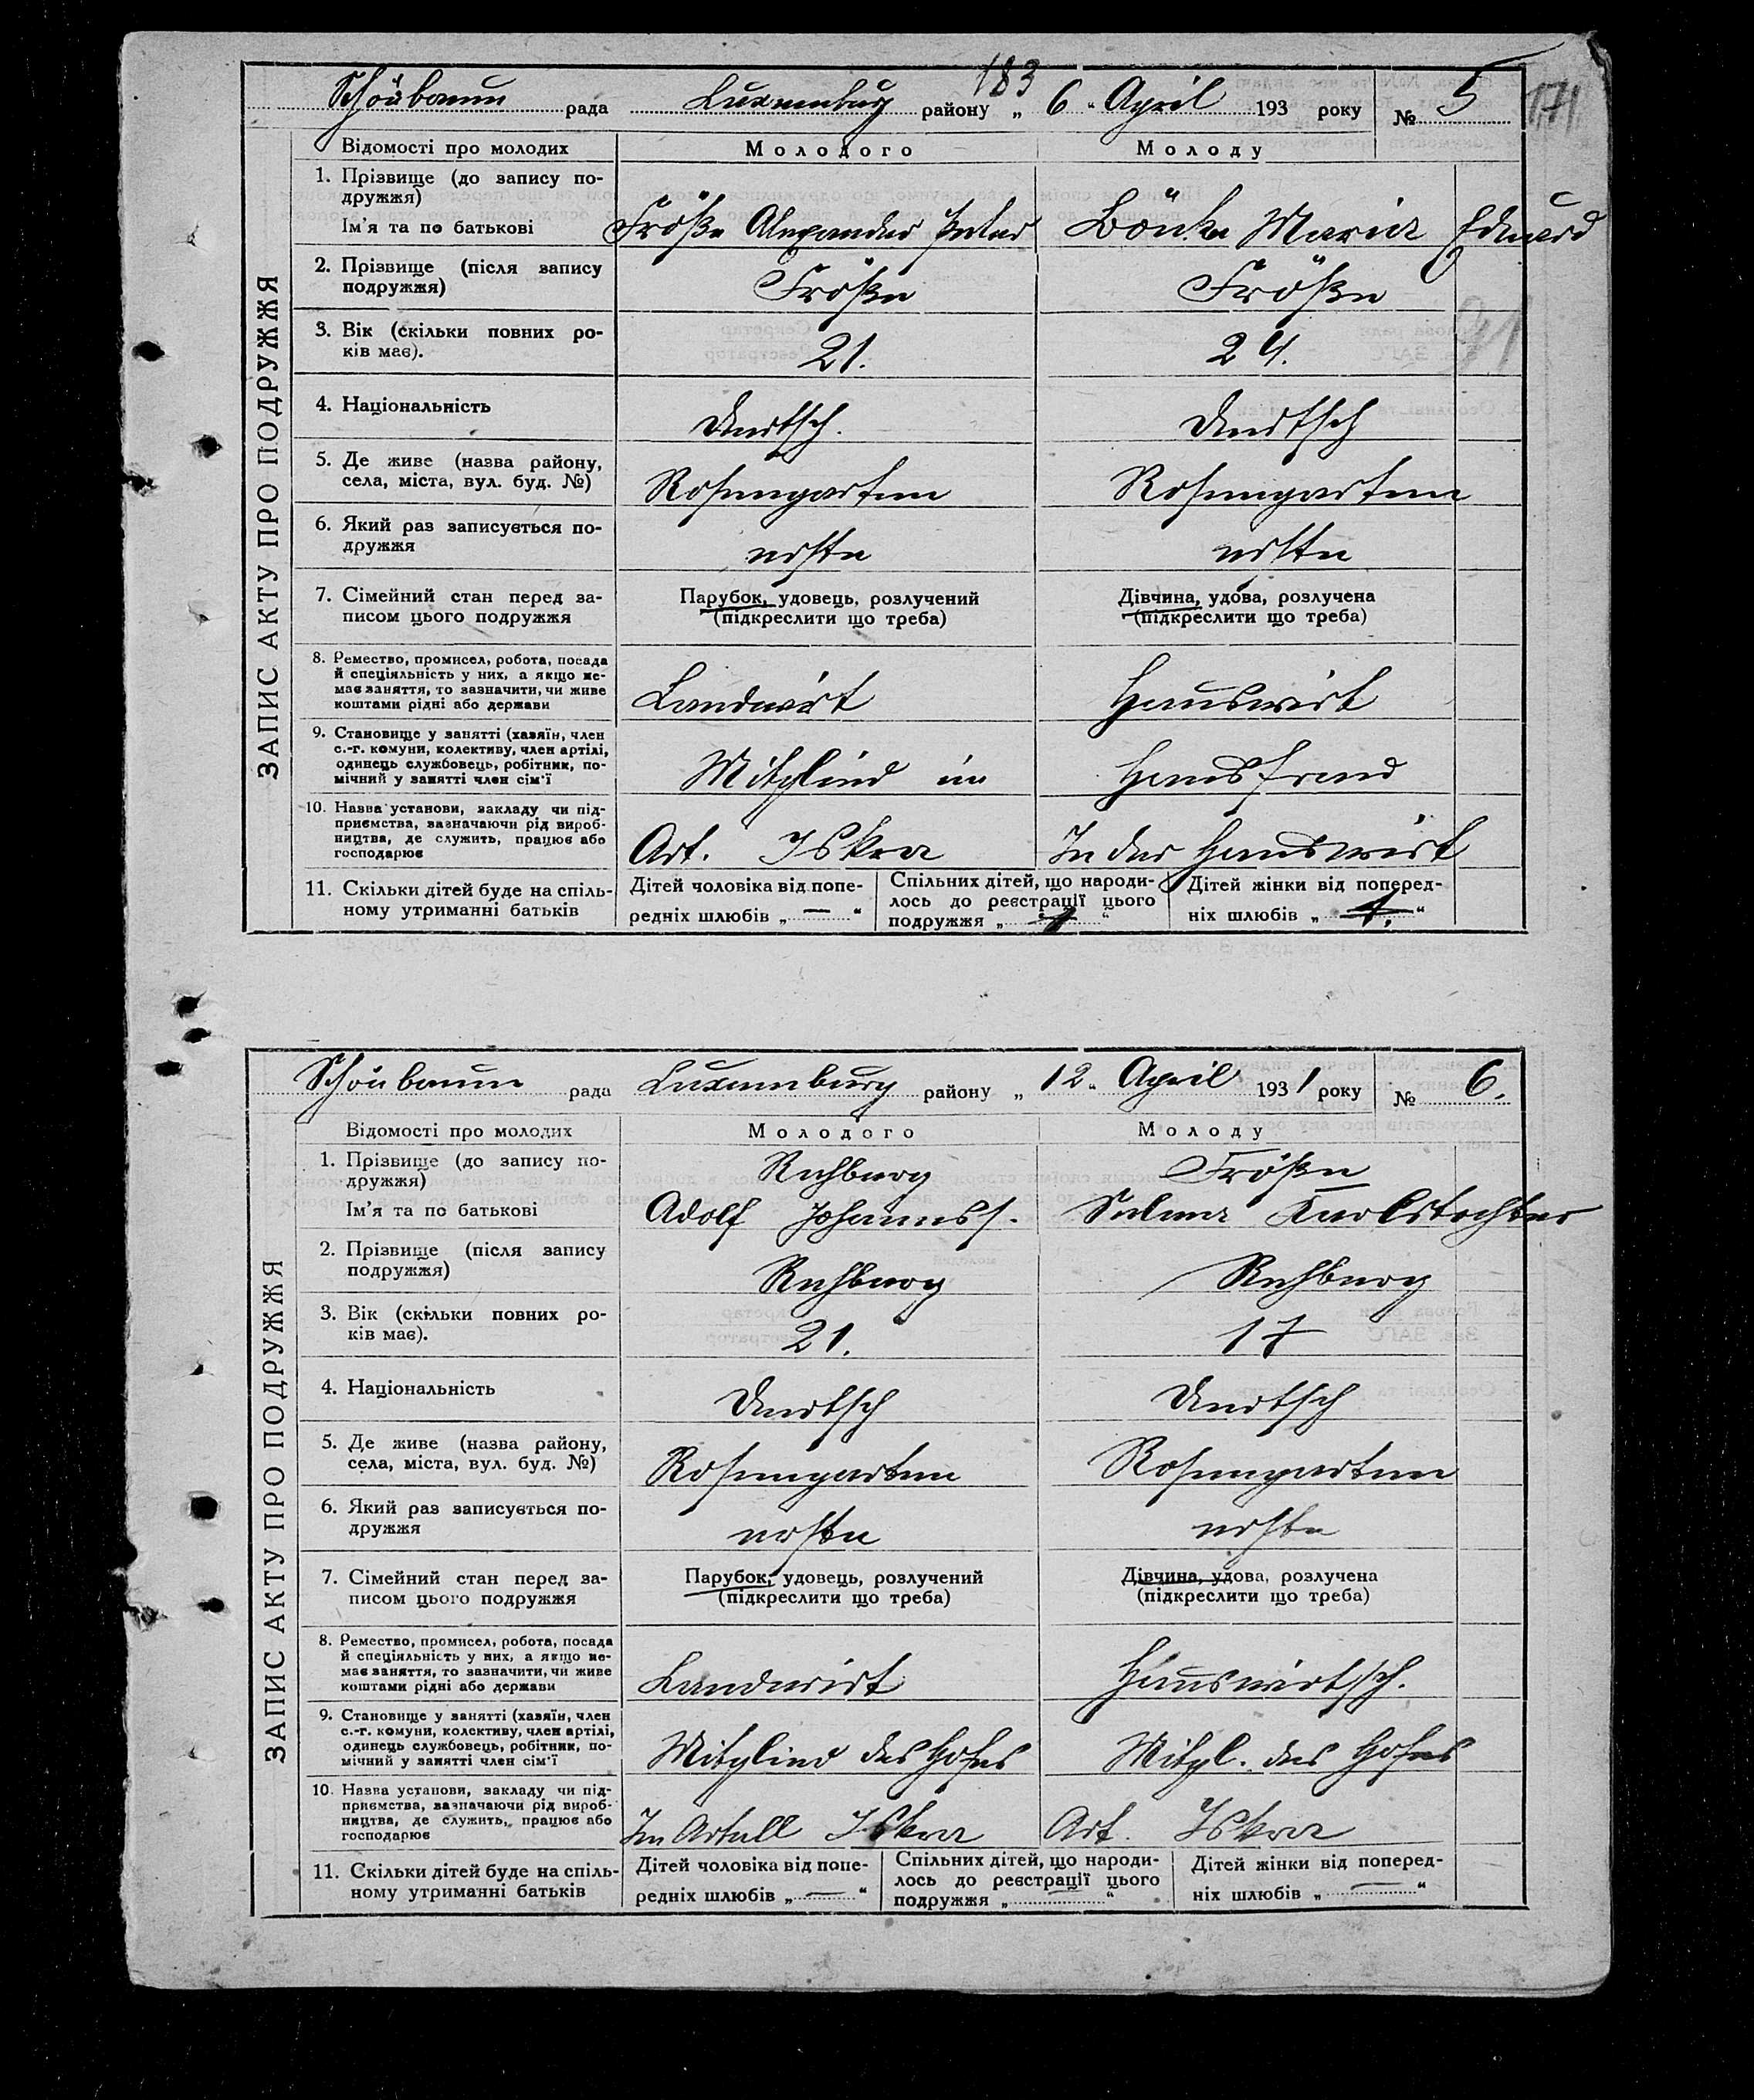 183
Schönbaum рада Luxemburg району „ 6 “ April 193 року № 5
171
ЗАПИС АКТУ ПРО ПОДРУЖЖЯ
Відомості про молодих Молодого Молоду
1. Прізвище (до запису по-
дружжя)
Ім'я та по батькові Fröse Alexander Peter Bönke Maria Eduard
2. Прізвище (після запису
подружжя) Fröse Fröse
3. Вік (скільки повних ро-
ків має). 21. 24.
4. Національність Deutsch. Deutsch
5. Де живе (назва району,
села, міста, вул. буд. №) Rosengarten Rosengarten
6. Який раз записується по-
дружжя erste erste
7. Сімейний стан перед за-
писом цього подружжя
Парубок, удовець, розлучений
(підкреслити що треба)
Дівчина, удова, розлучена
(підкреслити що треба)
8. Ремество, промисел, робота, посада
й спеціяльність у них, а якщо не-
має заняття, то зазначити, чи живе
коштами рідні або держави Landwirt Hauswirt
9. Становище у занятті (хазяїн, член
с.-г. комуни, колективу, член артілі,
одинець службовець, робітник, по-
мічний у занятті член сім'ї Mitglied im
10. Назва установи, закладу чи під-
приємства, зазначаючи рід вироб-
ництва, де служить, працює або
господарює Art. Iskra In der Hauswirt
11. Скільки дітей буде на спіль-
ному утриманні батьків
Дітей чоловіка від попе-
редніх шлюбів „ — “
Спільних дітей, що народи-
лось до реєстрації цього
подружжя „ “
Дітей жінки від поперед-
ніх шлюбів „ 1. “
Schönbaum рада Luxemburg району „ 12 “ April 1931 року № 6.
ЗАПИС АКТУ ПРО ПОДРУЖЖЯ
Відомості про молодих Молодого Молоду
1. Прізвище (до запису по-
дружжя) Rehburg Fröse
Ім'я та по батькові Adolf Johanness. Selma Karlstochter
2. Прізвище (після запису
подружжя) Rehburg Rehburg
3. Вік (скільки повних ро-
ків має). 21. 17
4. Національність Deutsch Deutsch
5. Де живе (назва району,
села, міста, вул. буд. №) Rosengarten Rosengarten
6. Який раз записується по-
дружжя erste erste
7. Сімейний стан перед за-
писом цього подружжя
Парубок, удовець, розлучений
(підкреслити що треба)
Дівчина, удова, розлучена
(підкреслити що треба)
8. Ремество, промисел, робота, посада
й спеціяльність у них, а якщо не-
має заняття, то зазначити, чи живе
коштами рідні або держави Landwirt Hauswirtsch.
9. Становище у занятті (хазяїн, член
с.-г. комуни, колективу, член артілі,
одинець службовець, робітник, по-
мічний у занятті член сім'ї Mitglied des Hofes Mitgl. des Hofes
10. Назва установи, закладу чи під-
приємства, зазначаючи рід вироб-
ництва, де служить, працює або
господарює Im Artell Iskra Art. Iskra
11. Скільки дітей буде на спіль-
ному утриманні батьків
Дітей чоловіка від попе-
редніх шлюбів „ — “
Спільних дітей, що народи-
лось до реєстрації цього
подружжя „ — “
Дітей жінки від поперед-
ніх шлюбів „ — “